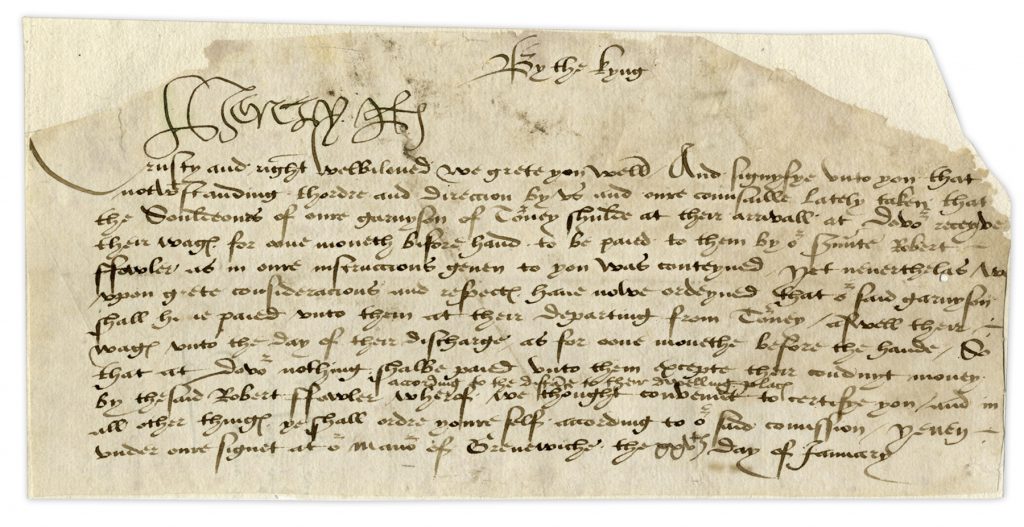 By the kyng
Henry R
Trusty and right welbiloved we grete you well And signyfye unto you that
notwtstanding thordre and direccion by us and oure counsaille lately taken that
the Souldeours of oure garnyson of Torney shulde at their arrivall at Dovor receyve
their wages for oone moneth before hand to be paied to them by or srvunte Robert
ffowler as in oure instruccions geven to you was conteyned Yet neverthelas we
upon grete consideracions and respectes have nowe ordeyned that or said garnyson
shall have paied unto them at their departing from Torney / aswell their
wages unto the day of their discharge as for oone monethe before the hande / So
that at Dovor nothing shalbe paied unto them excepte their conduyt money
according to the distance to their dwelling places
by thesaid Robert ffowler wherof we thought convenient to certifye you / and in
all other thinges ye shall ordre youre self according to or said comission / Yeven
under oure signet at or Manor of Grenewiche the day of January